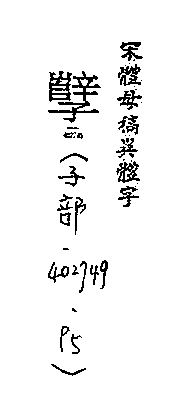 宋體母稿異體字
(子部-402749、P5)